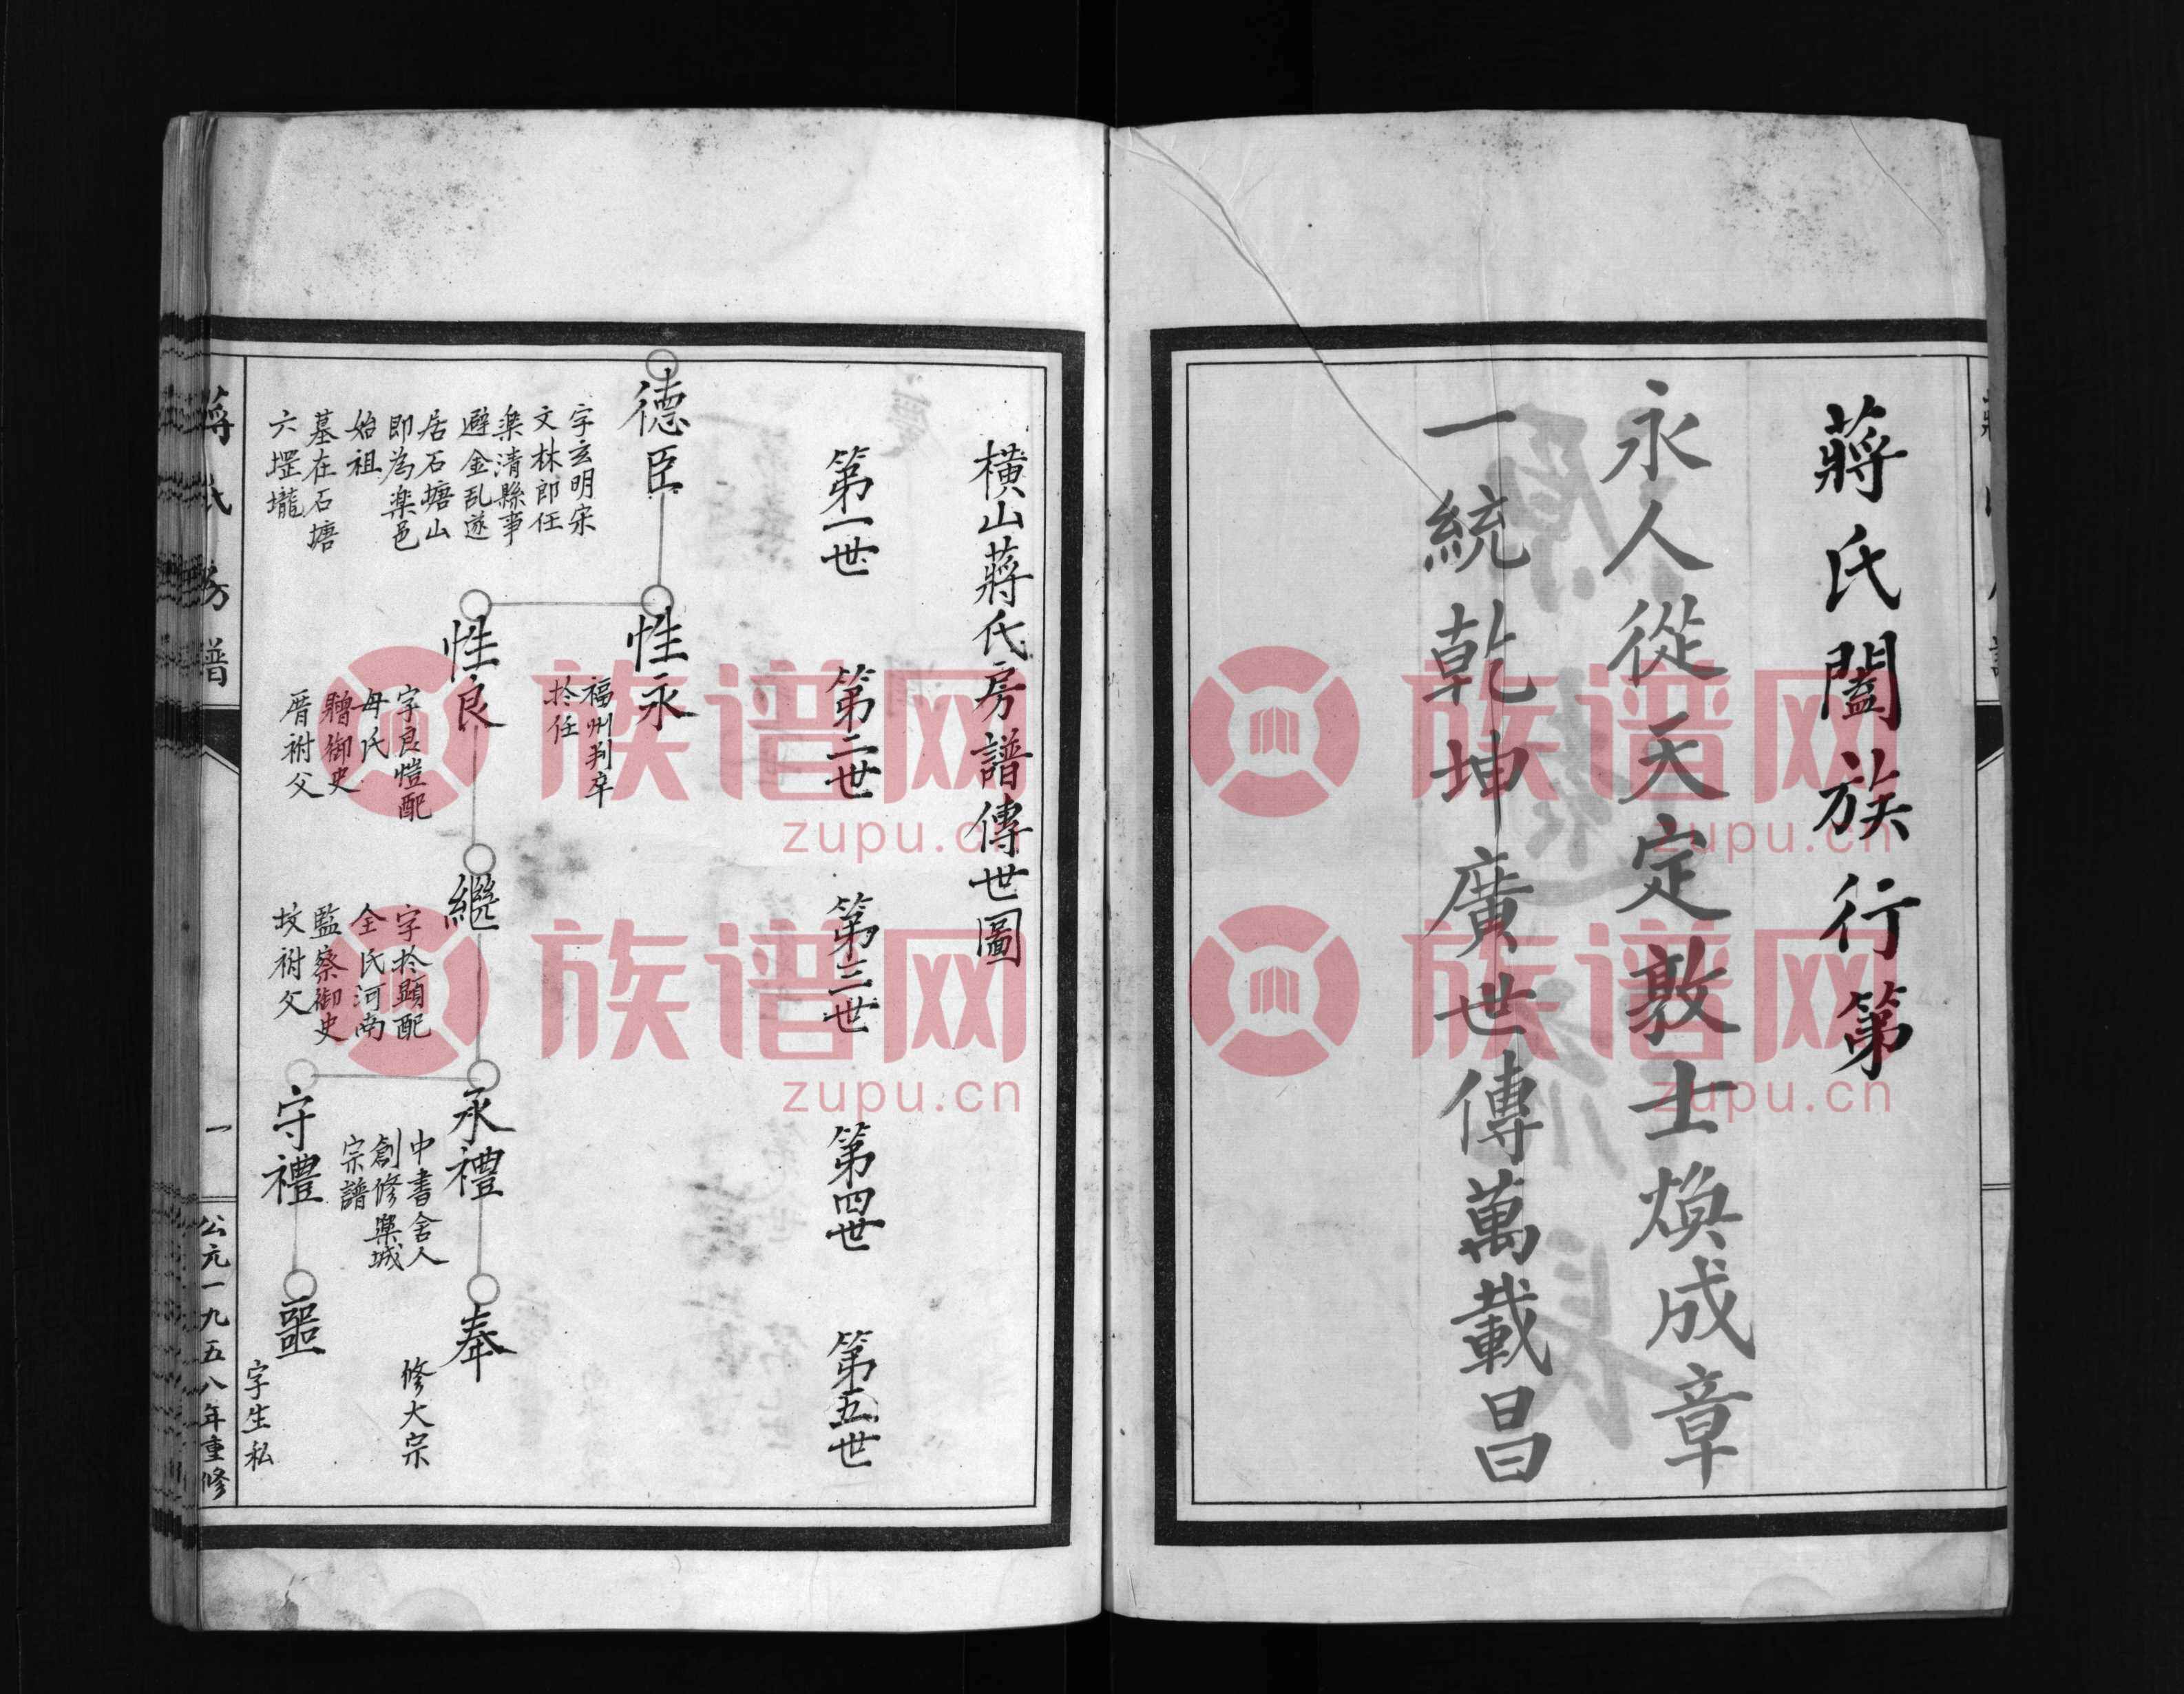 蔣氏闔族行第
永人從天定敦士煥成章
一統乾坤廣世傳萬載昌
橫山蔣氏房譜傳世圖
第一世
第二世
第三世
第四世
第五世
德臣
字玄明宋
文林郎任
楽清縣事
避金乱遂
居石塘山
即為楽邑
始祖
墓在石塘
六罡壠
性永
福州判卒
扵任
性良
字良愷配
母氏
贈御史
厝祔父
繼
字扵顕配
全氏河南
監察御史
坟祔父
永禮
中書舍人
創修樂城
宗譜
守禮
奉
修大宗
噩
字生私
蔣氏房譜
一
公元一九五八年重修
族谱网
zupu.cn
族谱网
zupu.cn
族谱网
zupu.cn
族谱网
zupu.cn